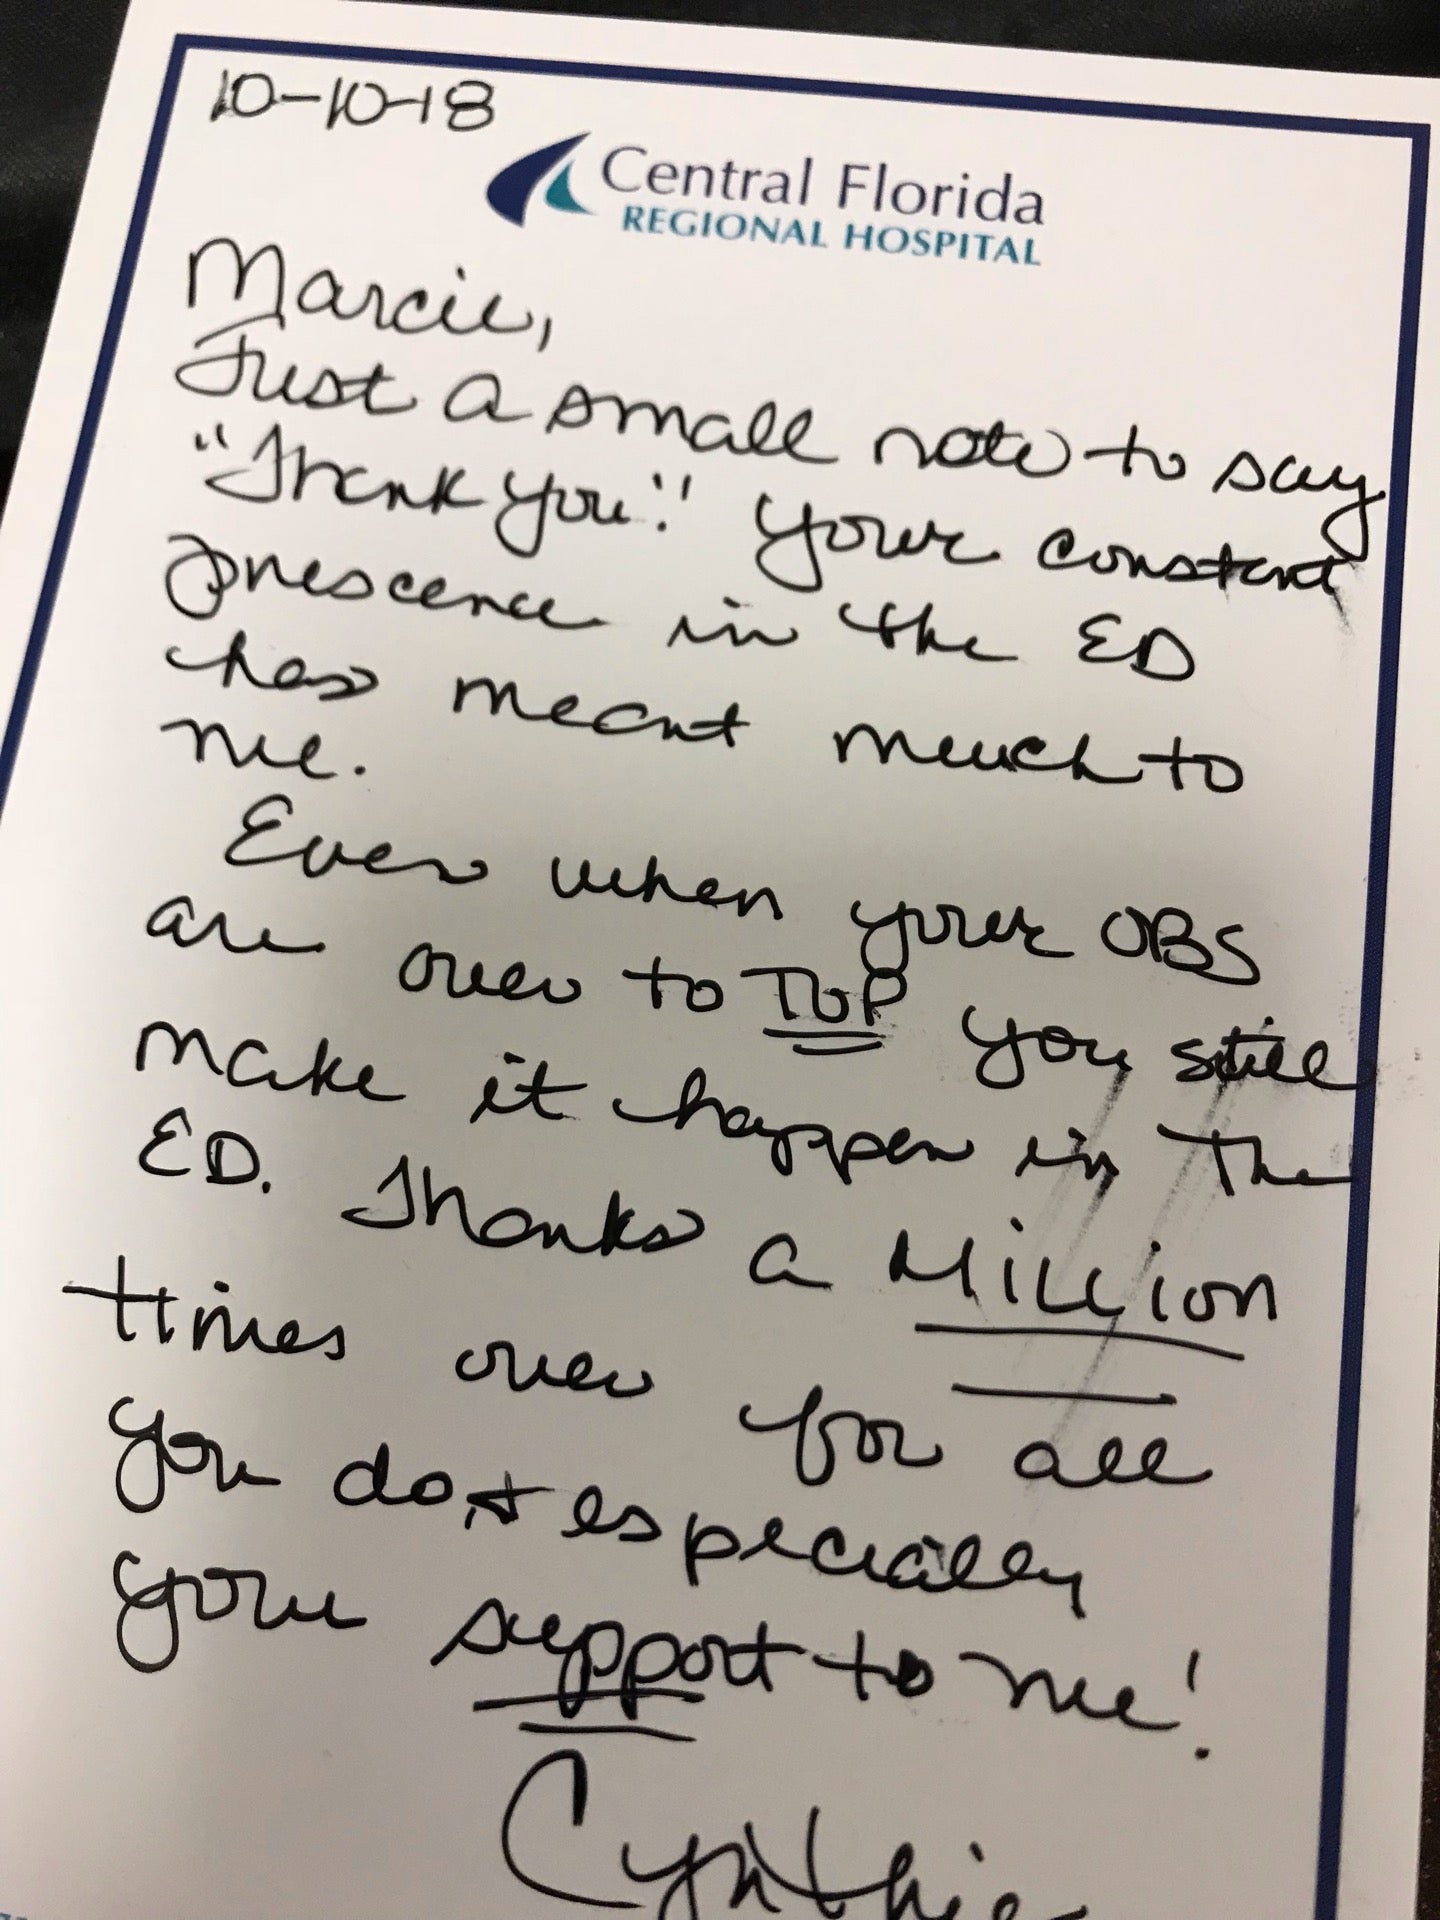 10-10-18
Central Florida
REGIONAL HOSPITAL
Marcie,
Just a small note to say
"Thank you!" Your constant
prescence in the ED
has meant much to
me.
Even when your OBS
are over to TOP you still
make it happen in the
ED. Thanks a Million
times over for all
you do, & especially
your support to me!
Cynthia